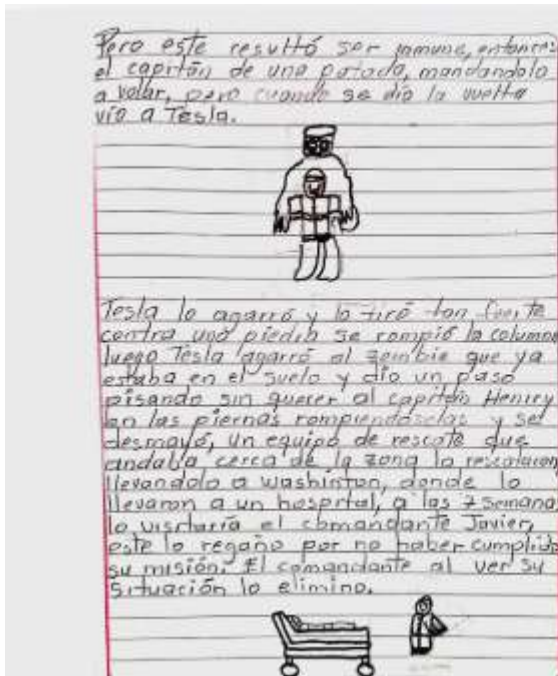 Pero este resultó ser inmune, entonces
el capitán de una patada, mandandolo
a volar, pero cuando se dio la vuelta
vio a Tesla.
Tesla lo agarró y lo tiró tan fuerte
contra una piedra se rompió la columna
luego Tesla agarró al zombie que ya
estaba en el suelo y dio un paso
pisando sin querer al capitán Henrry
en las piernas rompiendoselas y se
desmayó, un equipo de rescate que
andaba cerca de la zona lo rescataron
llevandolo a washinton, donde lo
llevaron a un hospital, a las 7 semanas
lo visitaría el comandante Javier,
este lo regaño por no haber cumplido
su misión. El comandante al ver su
situación lo elimino.